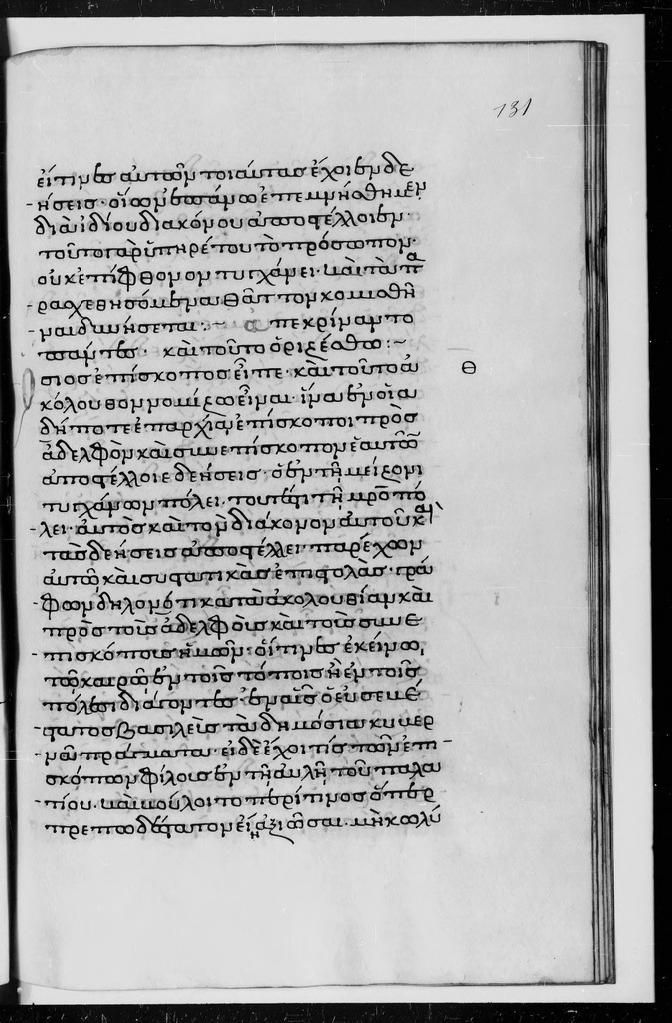 131
εἴ τινες αὐτῶν τοιαύτας ἔχοιεν δε
ήσεις. οἵων ἐπάνω ἐπεμνήσθημεν
διὰ ἰδίου διακόνου ἀποστέλλοιεν.
τοῦτο γὰρ ὑπηρέτου τὸ πρόσωπον.
οὐκ ἐπίφθονον τυγχάνει. καὶ τὰ πα
ραχεθησόμενα θᾶττον κομισθῆ
ναι δυνήσεται :~ ἀπεκρίναντο
πάντες. καὶ τοῦτο ὁρισέσθω :~
Θ
σιος ἐπίσκοπος εἶπε. καὶ τοῦτο ἀ
κόλουθον νομίζω εἶναι. ἵνα ἐν οἵα
δήποτε ἐπαρχία ἐπίσκοποι πρὸς
ἀδελφὸν καὶ συνεπίσκοπον ἑαυτῶν
ἀποστέλλοιε δεήσεις. ὁ ἐν τῇ μείζονι
τυγχάνων πόλει. τουτέστι τῇ μρὸπό
λει. αὐτὸς καὶ τὸν διάκονον αὐτοῦ καὶ
τὰς δεήσεις ἀποστέλλει. παρέχων
αὐτῷ καὶ συστατικὰς ἐπιστολὰς. γρά
φων δηλονότι κατὰ ἀκολουθίαν καὶ
πρὸς τοὺς ἀδελφοὺς καὶ τοὺς συνε
πισκόπους ἡμῶν. οἵ τινες ἐκείνω
τῷ καιρῷ ἐν τοῖς τόποις ἢ ἐν τοῖς
πόλεσι διάγοντες. ἐν αἷς ὁ εὐσεβέ
στατος βασιλεὺς τὰ δημόσια κυβερ
νᾶ πράγματα. εἰ δὲ ἔχοι τίς τῶν ἐπι
σκόπων φίλους ἐν τῇ αὐλῇ τοῦ παλα
τίου. καὶ βούλοιτο περί τινος ὅπερ
πρεπωδέστατον εἴη ἀξιῶσαι. μὴ κωλύ